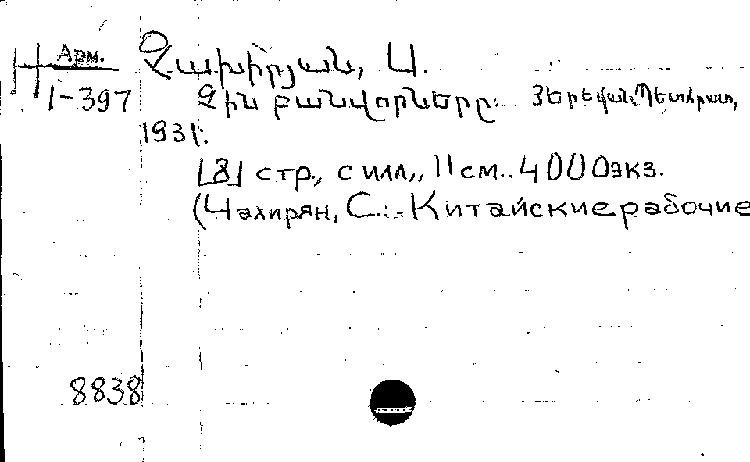 Арм. Չախիրյան, Ս.
1-397 Չին բանվորները. Յերեվան, Պետհրատ,
1931.
[8] стр., с илл., 11 см.. 4000 экз.
(Чахирян, С.:- Китайские рабочие
8838